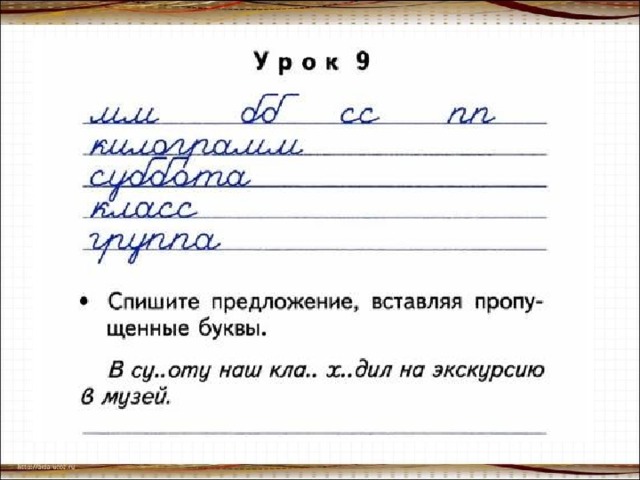 Урок 9
мм бб сс пп
килограмм
суббота
класс
группа
• Спишите предложение, вставляя пропу-
щенные буквы.
В су..оту наш кла.. х..дил на экскурсию
в музей.